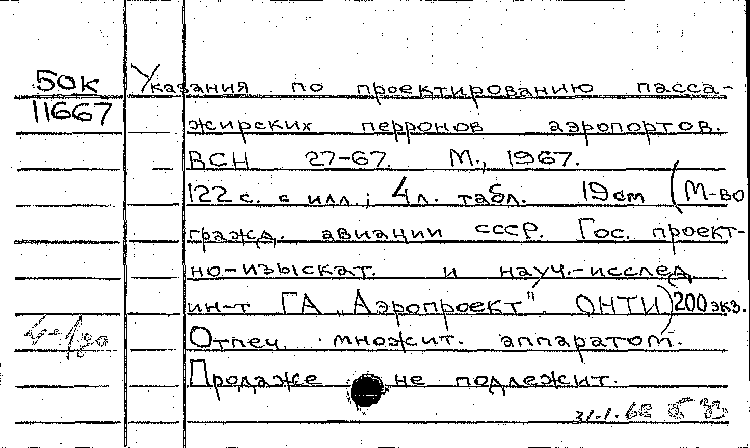 50к
11667
Указания по проектированию пасса-
жирских перронов аэропортов.
ВСН 27-67. М., 1967.
122 с. с илл.; 4 л. табл. 19 cm (М-во
гражд. авиации СССР. Гос. проект-
но-изыскат. и науч.-исслед.
ин-т ГА „Аэропроект". ОНТИ) 200 экз.
Отпеч. множит. аппаратом.
Продаже не подлежит.